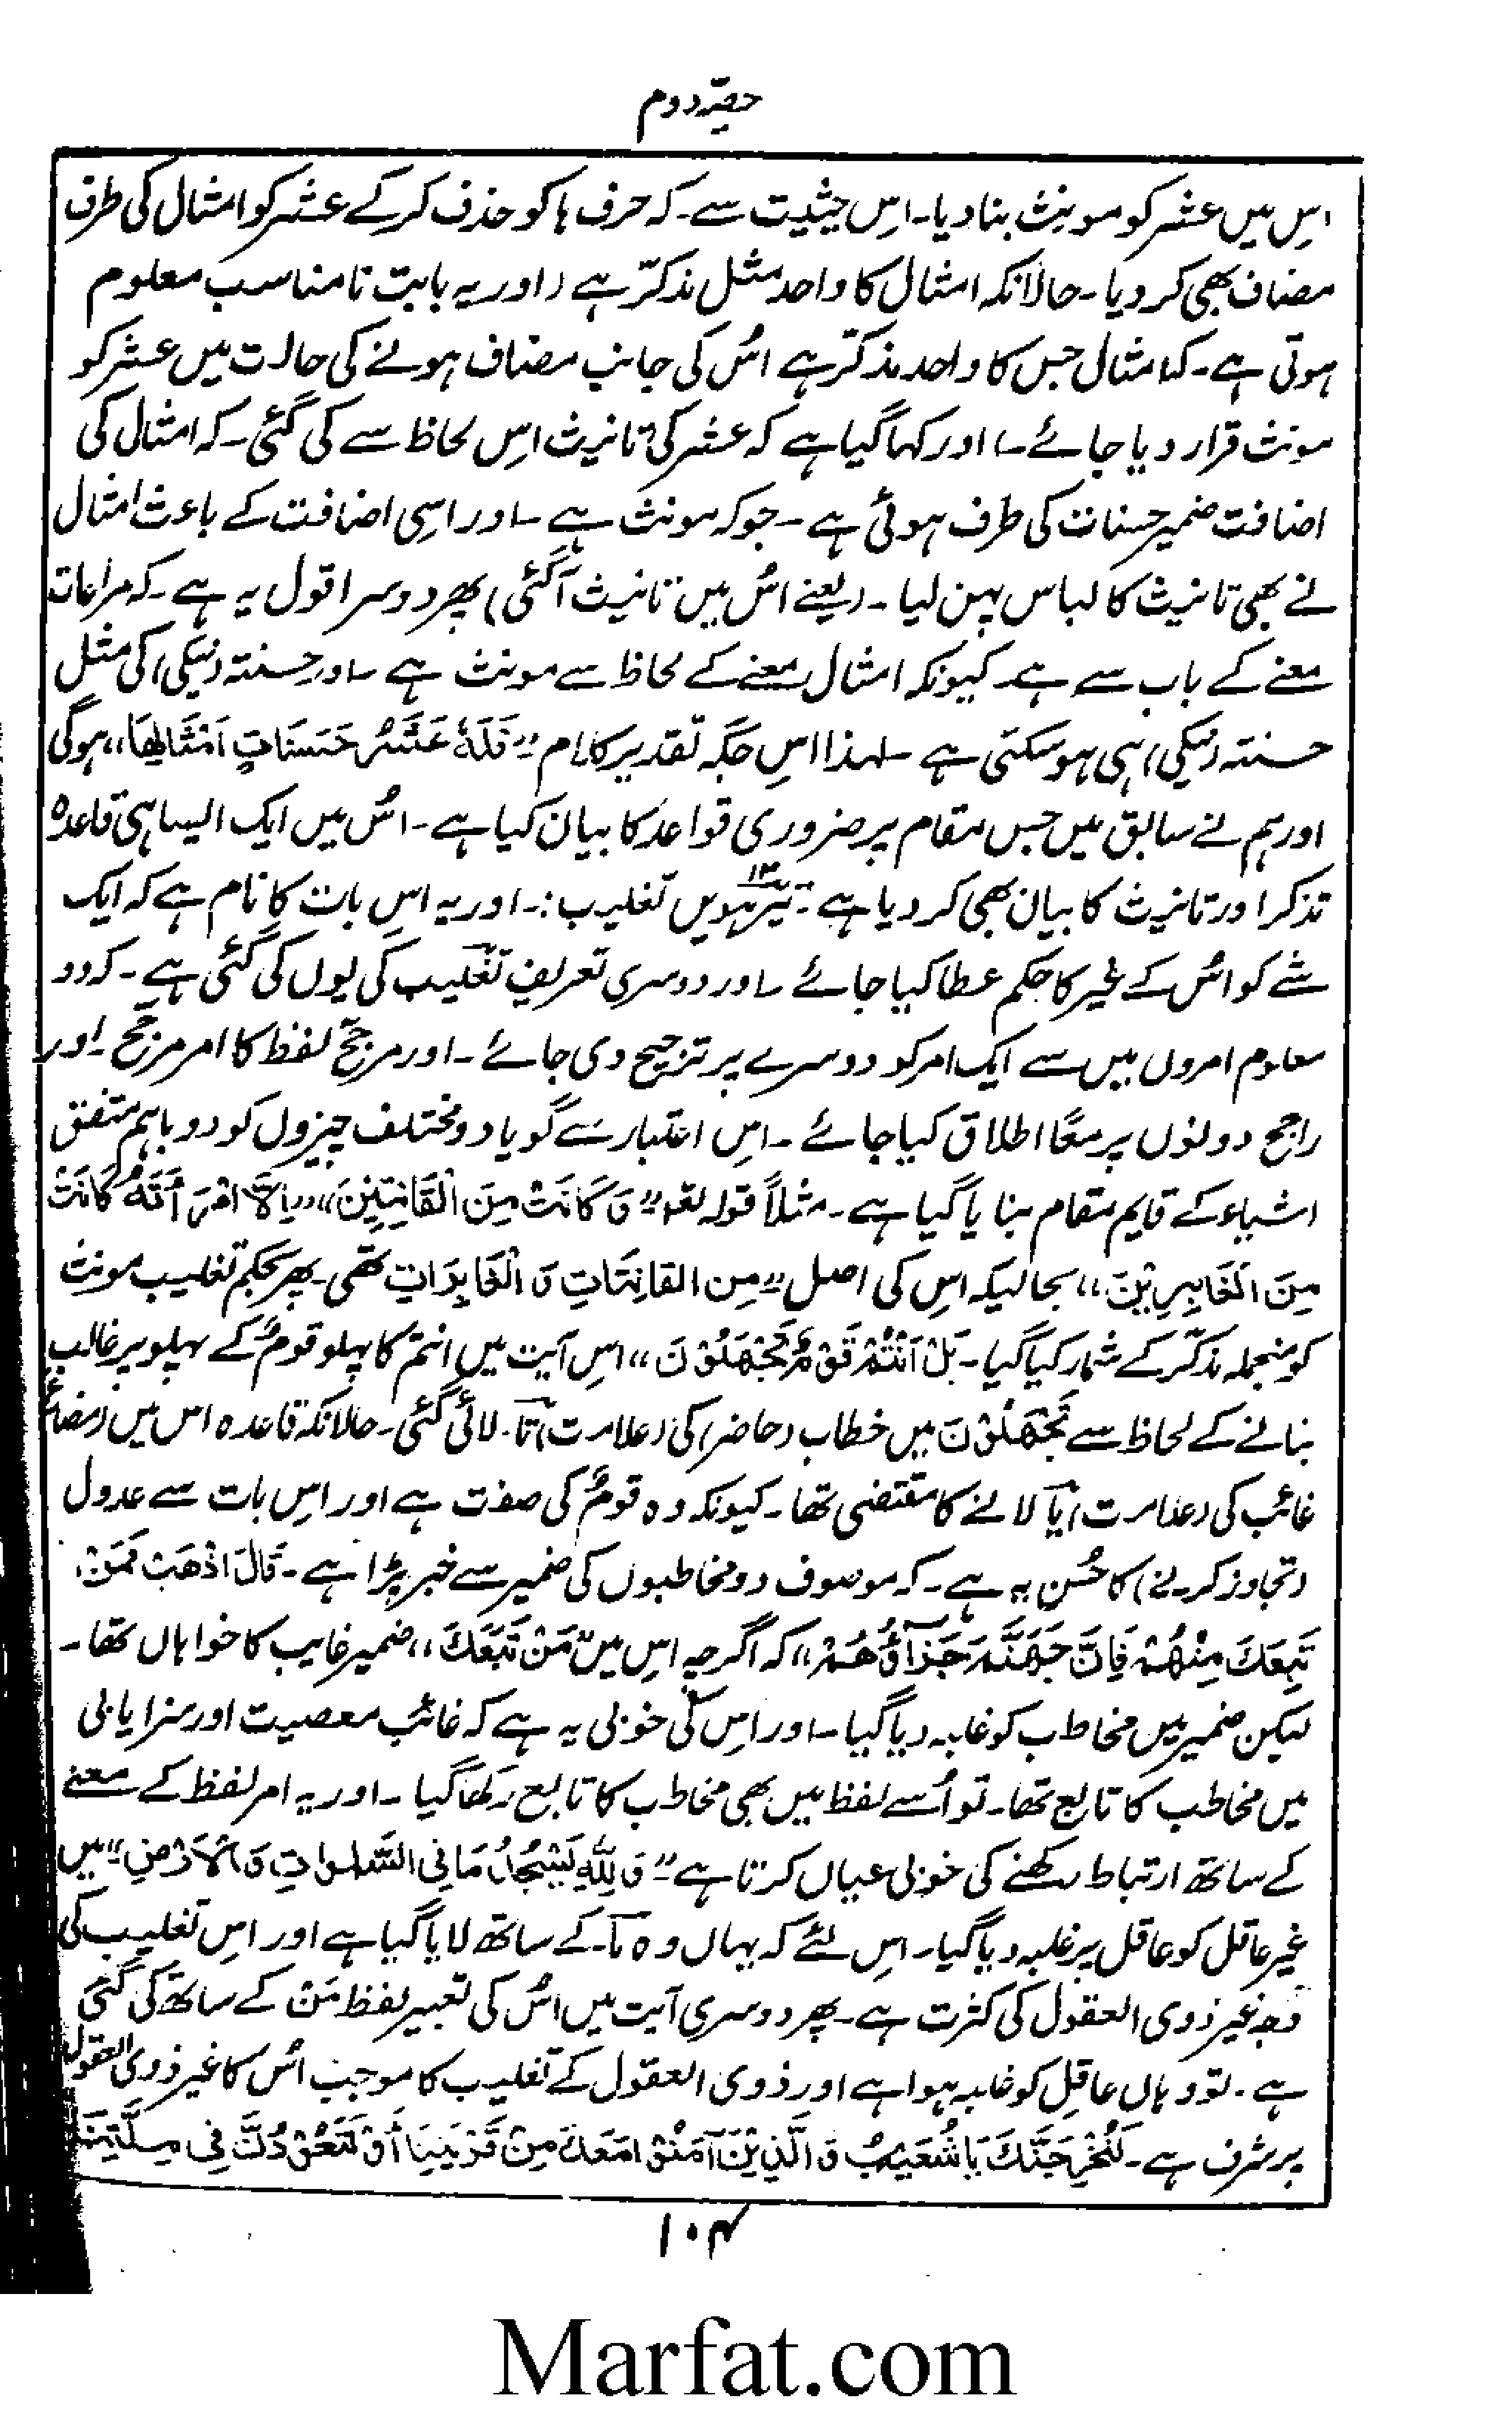 حصّہ دوم
اِس میں عشر کو مونث بنا دیا۔ اِس حیثیت سے۔ کہ حرف ہا کو حذف کر کے عشر کو امثال کی طرف
مضاف بھی کر دیا۔ حالانکہ امثال کا واحد مثل مذکّر ہے (اور یہ بابت نامناسب معلوم
ہوتی ہے۔ کہ امثال جس کا واحد مذکّر ہے اُس کی جانب مضاف ہونے کی حالت میں عشر کو
مونث قرار دیا جائے۔) اور کہا گیا ہے کہ عشر کی تانیث اِس لحاظ سے کی گئی۔ کہ امثال کی
اضافت ضمیر حسنات کی طرف ہوئی ہے۔ جو کہ مونث ہے۔ اور اسِی اضافت کے باعث امثال
نے بھی تانیث کا لباس پہن لیا۔ (یعنے اُس میں تانیث آگئی) پھر دوسرا قول یہ ہے۔ کہ مراعات
معنے کے باب سے ہے۔ کیونکہ امثال معنے کے لحاظ سے مونث ہے۔ اور حسنتہ (نیکی) کی مثل
حسنتہ (نیکی) ہی ہو سکتی ہے۔ لہذا اِس جگہ تقدیر کلام ”فَلَهٗ عَشَرُ حَسَنَاتٍ اَمْثَالِهَا“ ہوگی
اور ہم نے سابق میں جس مقام پر ضروری قواعد کا بیان کیا ہے۔ اُس میں ایک ایسا ہی قاعدہ
تذکر اور تانیث کا بیان بھی کر دیا ہے :۔ تیرھویں ۱۳ تغلیب :۔ اور یہ اِس بات کا نام ہے کہ ایک
شے کو اُس کے غیر کا حکم عطا کیا جائے۔ اور دوسری تعریف تغلیب کی یوں کی گئی ہے۔ کہ دو
معلوم امروں میں سے ایک امر کو دوسرے پر ترجیح دی جائے۔ اور مرجّح لفظ کا امر مرجّح۔ اور
راجح دونوں پر معًا اطلاق کیا جائے۔ اِس اعتبار سے گویا دو مختلف چیزوں کو دو باہم متفق
اشیاء کے قایم مقام بنایا گیا ہے۔ مثلاً قولہ تعہ ”وَ كَانَتْ مِنَ الْقَانِتِيْنَ“ ”اِلَّا امْرَأَتَهُ كَانَتْ
مِنَ الْغَابِرِيْنَ“ بحالیکہ اِس کی اصل ”مِن القانِتَاتِ وَ الْغَابِرَاتِ تھی۔ پھر بحکم تغلیب مونث
کو منجملہ مذکّر کے شمار کیا گیا۔ بَلْ اَنْتُمْ قَوْمٌ تَجْهَلُوْنَ“ اِس آیت میں انتم کا پہلو قومٌ کے پہلو پر غالب
بنانے کے لحاظ سے تَجْهَلُوْنَ میں خطاب (حاضر) کی (علامت) تا۔ لائی گئی۔ حالانکہ قاعدہ اس میں (مضارع)
غائب کی (علامت) یا لانے کا مقتضی تھا۔ کیونکہ وہ قومٌ کی صفت ہے اور اِس بات سے عدول
(تجاوز کرنے) کا حُسن یہ ہے۔ کہ موصوف دو مخاطبوں کی ضمیر سے خبر پڑا ہے۔ قَالَ اذْهَبْ فَمَنْ
تَبِعَكَ مِنْهُمْ فَاِنَّ جَهَنَّمَ جَزَآؤُهُمْ“ کہ اگرچہ اِس میں ”مَنْ تَبِعَكَ“ ضمیر غایب کا خواہاں تھا۔
لیکن ضمیر میں مخاطب کو غلبہ دیا گیا۔ اور اِس کی خوبی یہ ہے کہ غائب معصیت اور سزا یابی
میں مخاطب کا تابع تھا۔ تو اُسے لفظ میں بھی مخاطب کا تابع رکھا گیا۔ اور یہ امر لفظ کے معنے
کے ساتھ ارتباط رکھنے کی خوبی عیاں کرتا ہے ”وَ لِلّٰهِ يَسْجُدُ مَا فِى السَّمٰوَاتِ وَ الْاَرْضِ“ میں
غیر عاقل کو عاقل پر غلبہ دیا گیا۔ اِس لئے کہ یہاں وہ مَا۔ کے ساتھ لایا گیا ہے اور اِس تغلیب کی
وجہ غیر ذوی العقول کی کثرت ہے۔ پھر دوسری آیت میں اُس کی تعبیر لفظ مَنْ کے ساتھ کی گئی
ہے۔ تو وہاں عاقل کو غلبہ ہوا ہے اور ذوی العقول کے تغلیب کا موجب اُس کا غیر ذوی العقول
پر شرف ہے۔ لَنُخْرِجَنَّكَ يَا شُعَيْبُ وَ الَّذِيْنَ آمَنُوْا مَعَكَ مِنْ قَرْيَتِنَا أَوْ لَتَعُوْدُنَّ فِى مِلَّتِنَا
۱۰۴
Marfat.com